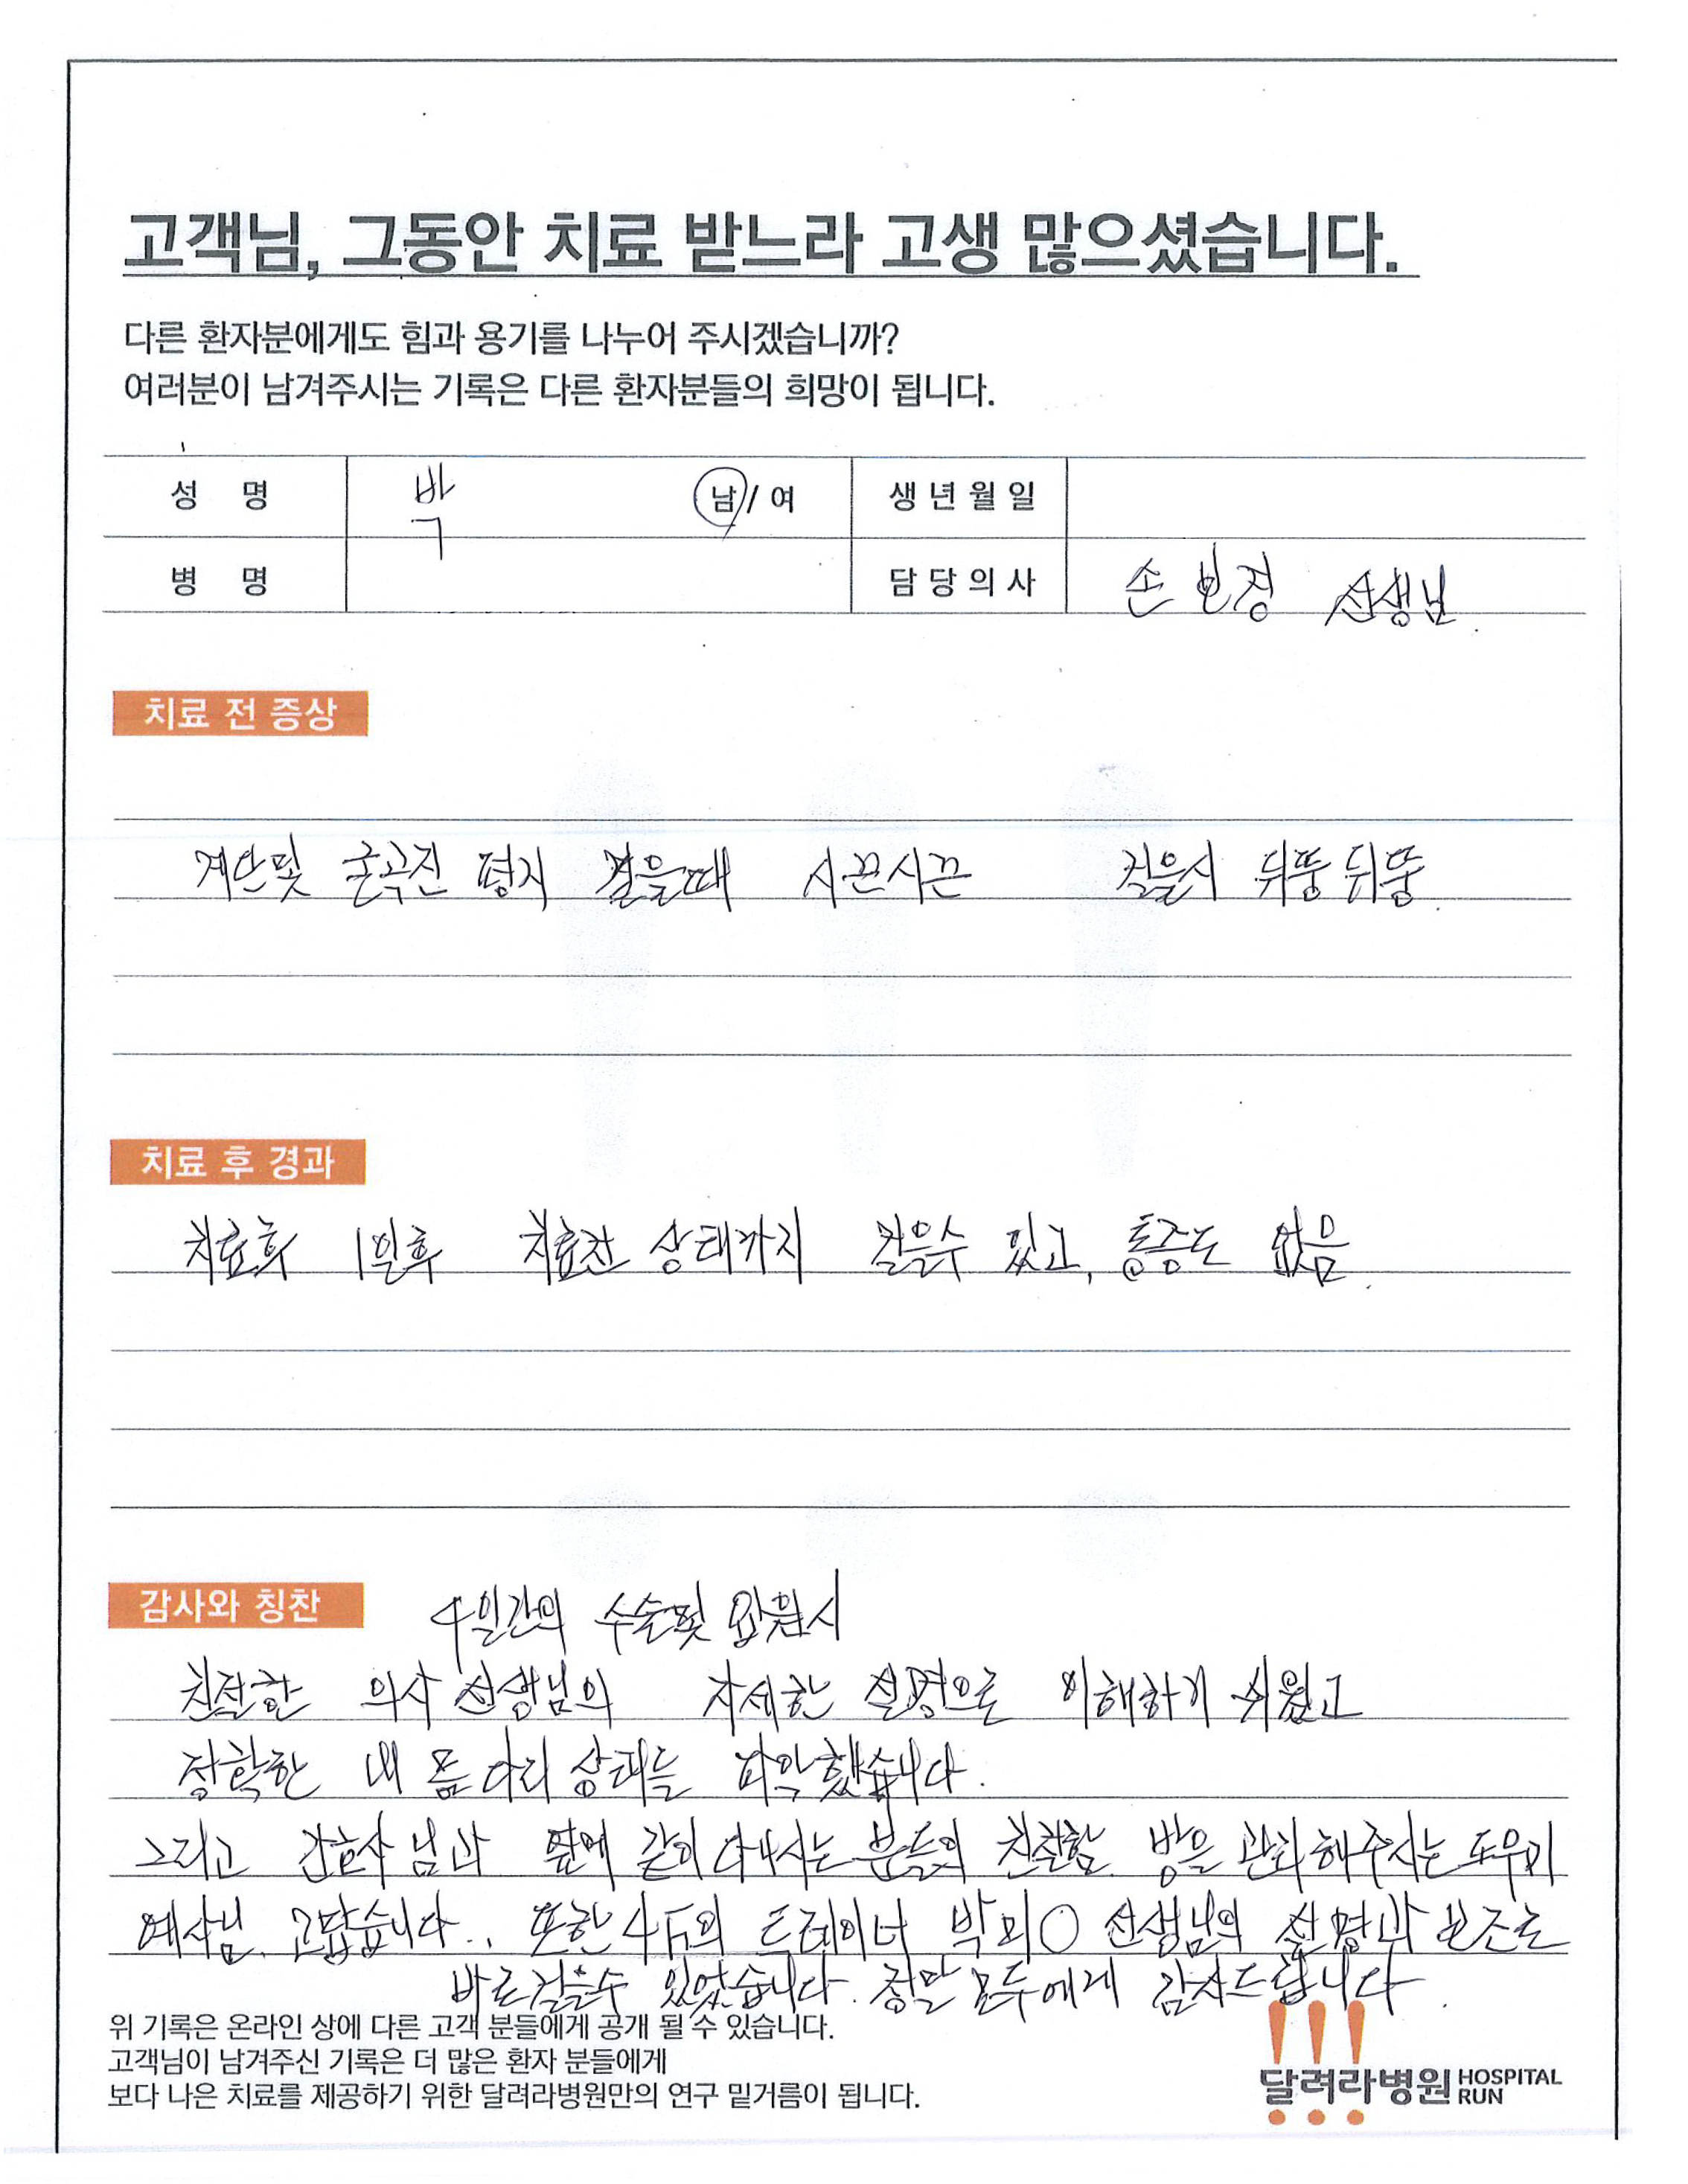 고객님, 그동안 치료 받느라 고생 많으셨습니다.
다른 환자분에게도 힘과 용기를 나누어 주시겠습니까?
여러분이 남겨주시는 기록은 다른 환자분들의 희망이 됩니다.
성 명 박 남/여 생년월일
병 명 담당의사 손보경 선생님
치료 전 증상
계단및 굴곡진 평지 걸을때 시끈시끈 걸을시 뒤뚱뒤뚱
치료 후 경과
치료후 1일후 치료전 상태까지 걸을수 있고, 통증도 없음
감사와 칭찬 4일간의 수술및 입원시
친절한 의사 선생님의 자세한 설명으로 이해하기 쉬웠고
정확한 내 몸 다리 상태를 파악했습니다.
그리고 간호사님과 옆에 같이 다니시는 분들의 친절함 방을 관리해주시는 도우미
여사님. 고맙습니다.. 또한 4F의 트레이너 박미○ 선생님의 설명과 보조로
바로걸을수 있었습니다. 정말 모두에게 감사드립니다.
위 기록은 온라인 상에 다른 고객 분들에게 공개 될 수 있습니다.
고객님이 남겨주신 기록은 더 많은 환자 분들에게
보다 나은 치료를 제공하기 위한 달려라병원만의 연구 밑거름이 됩니다.
달려라병원 HOSPITAL RUN